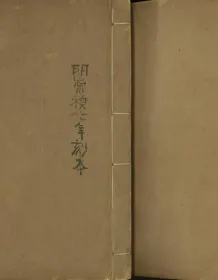 明崇禎七年刻本